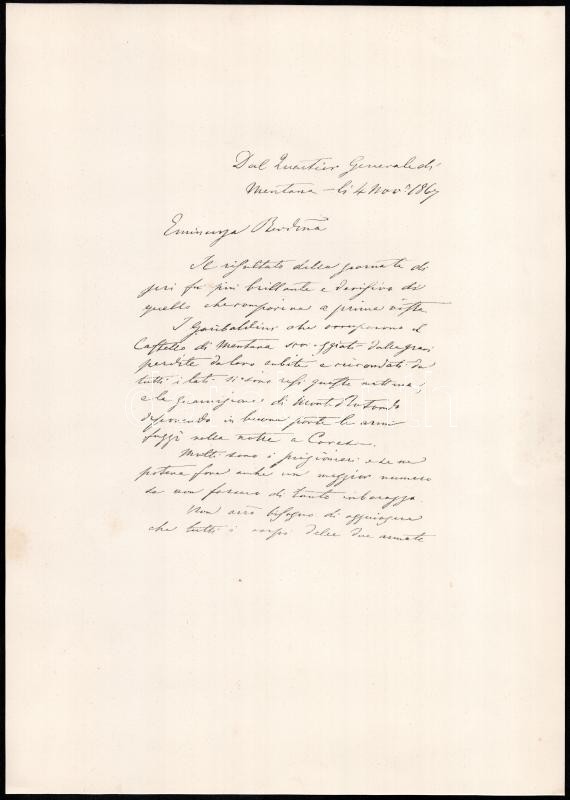 Dal Quartier Generale di
Mentana - li 4 Nov. 1867
Eminenza Rev.ma
Il risultato della giornata di
jeri fu più brillante e decisivo di
quello che compariva a prima vista
I Garibaldini che occupavano il
Castello di Mentana scoraggiati dalle gravi
perdite da loro subite e circondati da
tutti i lati si sono resi questa mattina,
e la guarnigione di Monte Rotondo
deponendo in buona parte le armi
fuggì nella notte a Corese.
Molti sono i prigionieri e se ne
poteva fare anche un maggior numero
se non fossero di tanto imbarazzo.
Non avrò bisogno di aggiungere
che tutti i corpi delle due armate